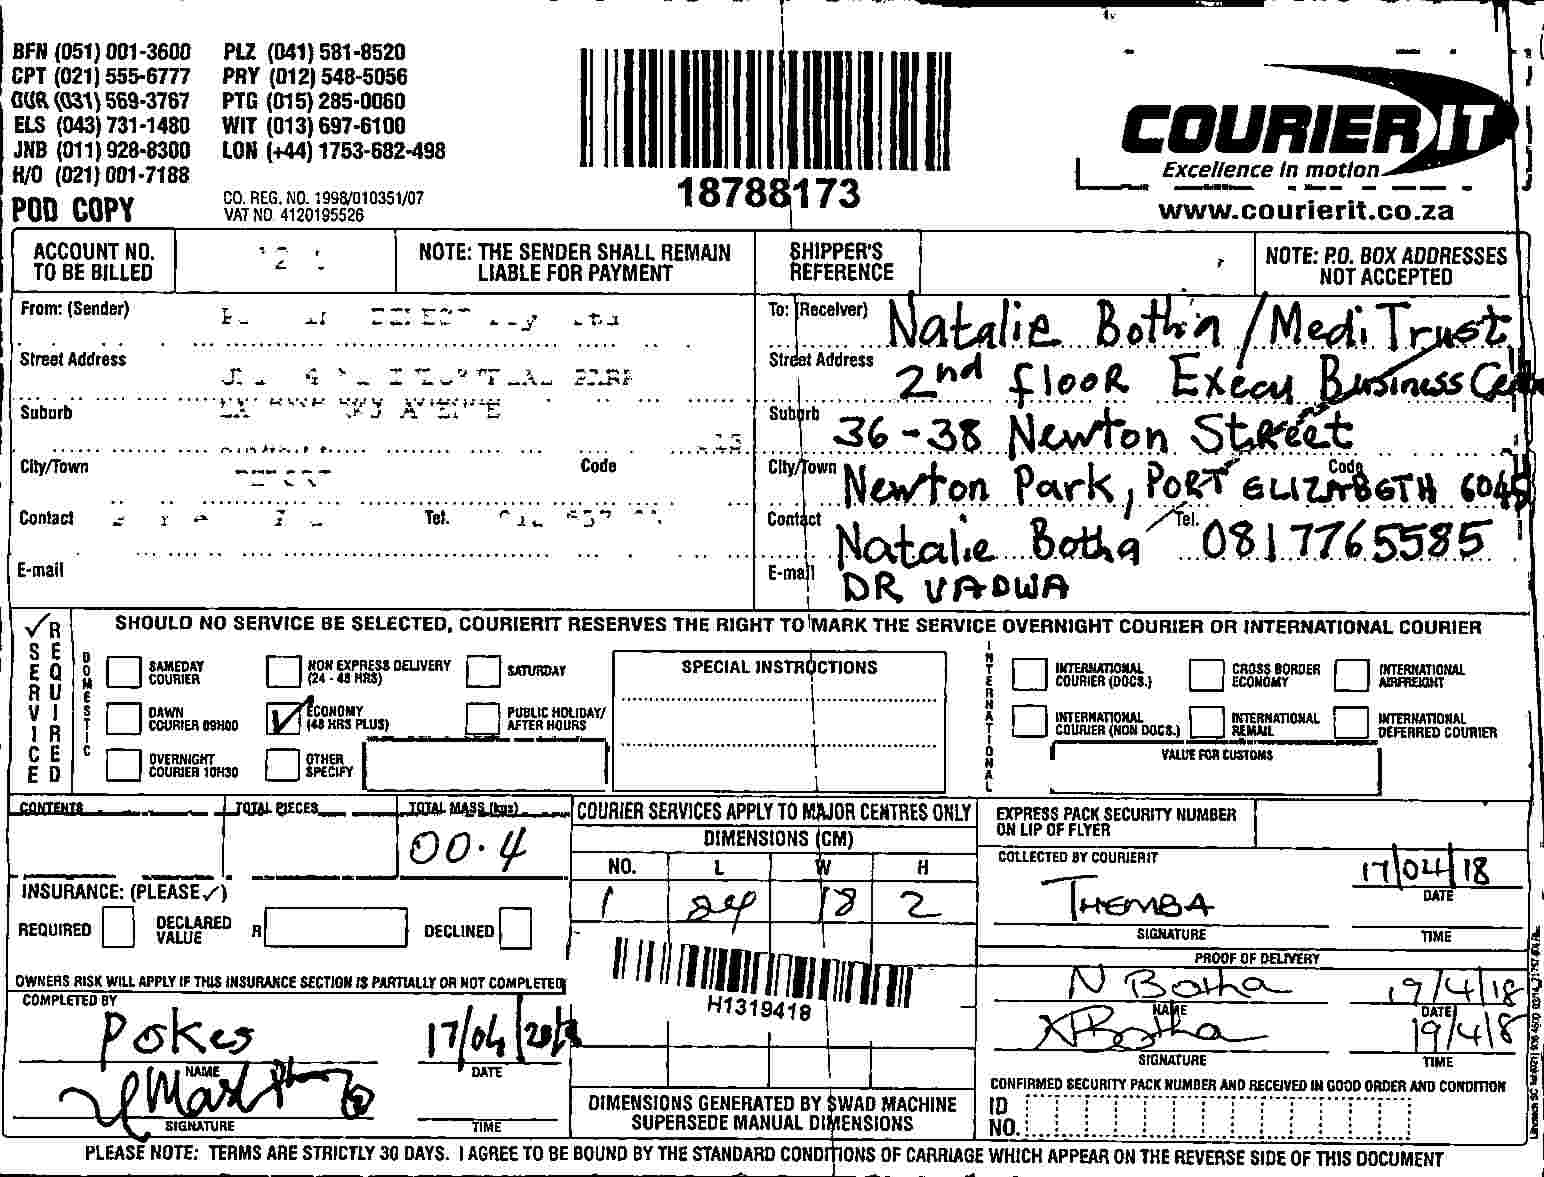 BFN (051) 001-3600 PLZ (041) 581-8520
CPT (021) 555-6777 PRY (012) 548-5056
DUR (031) 569-3767 PTG (015) 285-0060
ELS (043) 731-1480 WIT (013) 697-6100
JNB (011) 928-8300 LON (+44) 1753-682-498
H/O (021) 001-7188
POD COPY
CO. REG. NO. 1998/010351/07
VAT NO 4120195526
18788173
COURIER IT
Excellence in motion
www.courierit.co.za
ACCOUNT NO. TO BE BILLED
NOTE: THE SENDER SHALL REMAIN LIABLE FOR PAYMENT
SHIPPER'S REFERENCE
NOTE: P.O. BOX ADDRESSES NOT ACCEPTED
From: (Sender)
Street Address
Suburb
City/Town Code
Contact Tel.
E-mail
To: (Receiver) Natalie Botha / Medi Trust
Street Address 2nd floor Execu Business
Suburb 36-38 Newton Street
City/Town Newton Park, PORT ELIZABETH Code 6045
Contact Natalie Botha Tel. 0817765585
E-mail DR VADWA
SHOULD NO SERVICE BE SELECTED, COURIERIT RESERVES THE RIGHT TO MARK THE SERVICE OVERNIGHT COURIER OR INTERNATIONAL COURIER
✓ SERVICE REQUIRED
DOMESTIC
SAMEDAY COURIER
NON EXPRESS DELIVERY (24 - 48 HRS)
SATURDAY
DAWN COURIER 09H00
✓ ECONOMY (48 HRS PLUS)
PUBLIC HOLIDAY/ AFTER HOURS
OVERNIGHT COURIER 10H30
OTHER SPECIFY
SPECIAL INSTRUCTIONS
INTERNATIONAL
INTERNATIONAL COURIER (DOCS.)
CROSS BORDER ECONOMY
INTERNATIONAL AIRFREIGHT
INTERNATIONAL COURIER (NON DOCS.)
INTERNATIONAL REMAIL
INTERNATIONAL DEFERRED COURIER
VALUE FOR CUSTOMS
CONTENTS TOTAL PIECES TOTAL MASS (kgs)
00.4
INSURANCE: (PLEASE ✓)
REQUIRED DECLARED VALUE R DECLINED
OWNERS RISK WILL APPLY IF THIS INSURANCE SECTION IS PARTIALLY OR NOT COMPLETED
COMPLETED BY
Pokes 17/04/2018
NAME DATE
SIGNATURE TIME
COURIER SERVICES APPLY TO MAJOR CENTRES ONLY
DIMENSIONS (CM)
NO. L W H
1 24 18 2
H1319418
DIMENSIONS GENERATED BY SWAD MACHINE SUPERSEDE MANUAL DIMENSIONS
EXPRESS PACK SECURITY NUMBER ON LIP OF FLYER
COLLECTED BY COURIERIT
THEMBA 17/04/18
DATE
SIGNATURE TIME
PROOF OF DELIVERY
N Botha 19/4/18
NAME DATE
Botha 19/4/18
SIGNATURE TIME
CONFIRMED SECURITY PACK NUMBER AND RECEIVED IN GOOD ORDER AND CONDITION
ID NO.
PLEASE NOTE: TERMS ARE STRICTLY 30 DAYS. I AGREE TO BE BOUND BY THE STANDARD CONDITIONS OF CARRIAGE WHICH APPEAR ON THE REVERSE SIDE OF THIS DOCUMENT